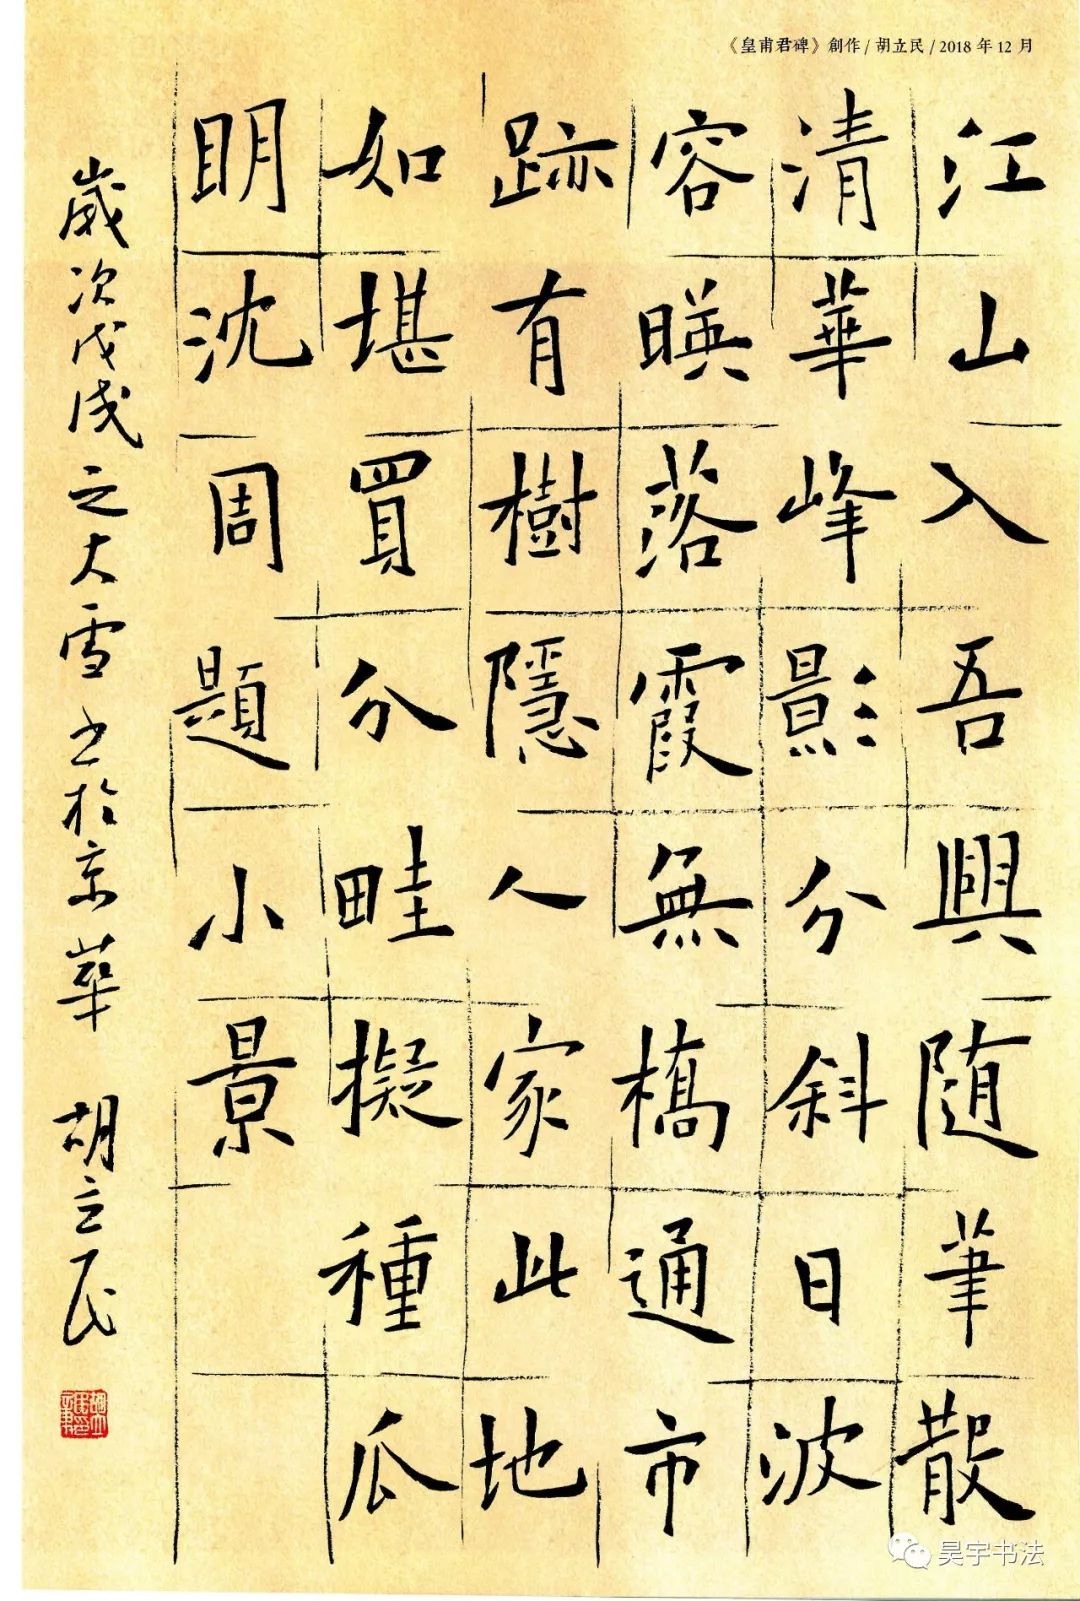 《皇甫君碑》創作/胡立民/2018年12月
江山入吾興随筆散
清華峰影分斜日波
容暎落霞無橋通市
跡有樹隱人家此地
如堪買分畦擬種瓜
明沈周題小景
歲次戊戌之大雪書於京華 胡立民
昊宇书法